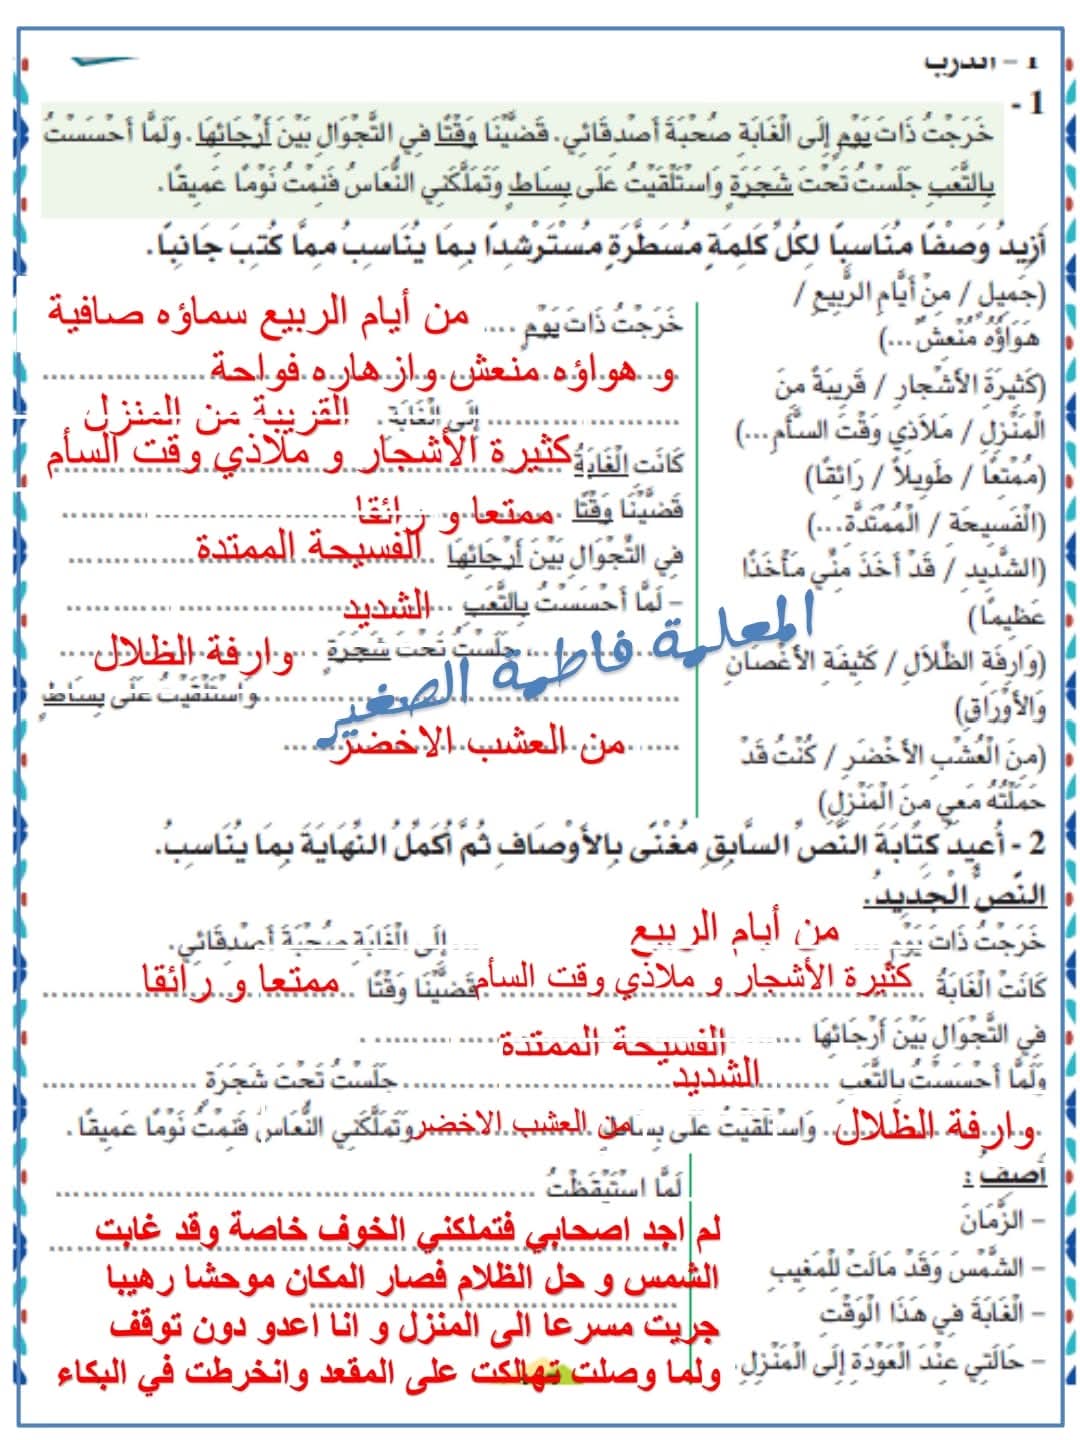 1 - أتدرب
1 -
خَرَجْتُ ذَاتَ يَوْمٍ إِلَى الْغَابَةِ صُحْبَةَ أَصْدِقَائِي. قَضَيْنَا وَقْتًا فِي التَّجْوَالِ بَيْنَ أَرْجَائِهَا. وَلَمَّا أَحْسَسْتُ
بِالتَّعَبِ جَلَسْتُ تَحْتَ شَجَرَةٍ وَاسْتَلْقَيْتُ عَلَى بِسَاطٍ وَتَمَلَّكَنِي النُّعَاسُ فَنِمْتُ نَوْمًا عَمِيقًا.
أَزِيدُ وَصْفًا مُنَاسِبًا لِكُلِّ كَلِمَةٍ مُسَطَّرَةٍ مُسْتَرْشِدًا بِمَا يُنَاسِبُ مِمَّا كُتِبَ جَانِبًا.
(جَمِيلٍ / مِنْ أَيَّامِ الرَّبِيعِ /
هَوَاؤُهُ مُنْعِشٌ...)
(كَثِيرَةَ الأَشْجَارِ / قَرِيبَةً مِنَ
الْمَنْزِلِ / مَلاَذِي وَقْتَ السَّأَمِ...)
(مُمْتِعًا / طَوِيلاً / رَائِقًا)
(الْفَسِيحَةِ / الْمُمْتَدَّةِ...)
(الشَّدِيدِ / قَدْ أَخَذَ مِنِّي مَأْخَذًا
عَظِيمًا)
(وَارِفَةِ الظِّلاَلِ / كَثِيفَةِ الأَغْصَانِ
وَالأَوْرَاقِ)
(مِنَ الْعُشْبِ الأَخْضَرِ / كُنْتُ قَدْ
حَمَلْتُهُ مَعِي مِنَ الْمَنْزِلِ)
خَرَجْتُ ذَاتَ يَوْمٍ .... من أيام الربيع سماؤه صافية
و هواؤه منعش وازهاره فواحة
إِلَى الْغَابَةِ. القريبة من المنزل
كَانَت الْغَابَةُ كثيرة الأشجار و ملاذي وقت السأم
قَضَيْنَا وَقْتًا ممتعا و رائقا
فِي التَّجْوَالِ بَيْنَ أَرْجَائِهَا الفسيحة الممتدة
- لَمَّا أَحْسَسْتُ بِالتَّعَبِ الشديد
جَلَسْتُ تَحْتَ شَجَرَةٍ وارفة الظلال
وَاسْتَلْقَيْتُ عَلَى بِسَاطٍ
من العشب الاخضر
المعلمة فاطمة الصغير
2 - أُعِيدُ كِتَابَةَ النَّصِّ السَّابِقِ مُغْنًى بِالأَوْصَافِ ثُمَّ أُكَمِّلُ النِّهَايَةَ بِمَا يُنَاسِبُ.
النَّصُّ الْجَدِيدُ.
خَرَجْتُ ذَاتَ يَوْمٍ ... من أيام الربيع ... إِلَى الْغَابَةِ صُحْبَةَ أَصْدِقَائِي.
كَانَت الْغَابَةُ كثيرة الأشجار و ملاذي وقت السأم قَضَيْنَا وَقْتًا ممتعا و رائقا
فِي التَّجْوَالِ بَيْنَ أَرْجَائِهَا الفسيحة الممتدة .
وَلَمَّا أَحْسَسْتُ بِالتَّعَبِ الشديد جَلَسْتُ تَحْتَ شَجَرَةٍ
وارفة الظلال وَاسْتَلْقَيْتُ عَلَى بِسَاطٍ من العشب الاخضر وَتَمَلَّكَنِي النُّعَاسُ فَنِمْتُ نَوْمًا عَمِيقًا.
أَصِفُ :
- الزَّمَانَ
- الشَّمْسَ وَقَدْ مَالَتْ لِلْمَغِيبِ
- الْغَابَةَ فِي هَذَا الْوَقْتِ
- حَالَتِي عِنْدَ الْعَوْدَةِ إِلَى الْمَنْزِلِ.
لَمَّا اسْتَيْقَظْتُ
لم اجد اصحابي فتملكني الخوف خاصة وقد غابت
الشمس و حل الظلام فصار المكان موحشا رهيبا
جريت مسرعا الى المنزل و انا اعدو دون توقف
ولما وصلت تهالكت على المقعد وانخرطت في البكاء